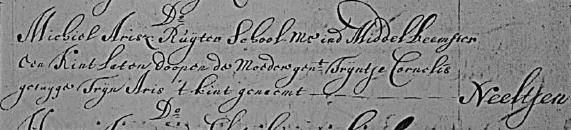 Do
Michiel Arisz Ruyter School Mr ind Middel beemster
een Kint laten doopen de Moeder gent Tryntje Cornelis
getuyge Tryn Aris t kint genaemt Neeltjen
Do